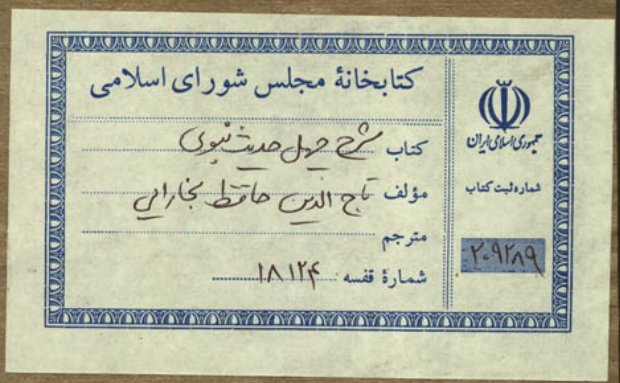 کتابخانهٔ مجلس شورای اسلامی
کتاب شرح چهل حدیث نبوی
مؤلف تاج الدین حافظ بخارائی
مترجم
شمارهٔ قفسه ۱۸۱۲۴
جمهوری اسلامی ایران
شماره ثبت کتاب
۲۰۹۲۸۹